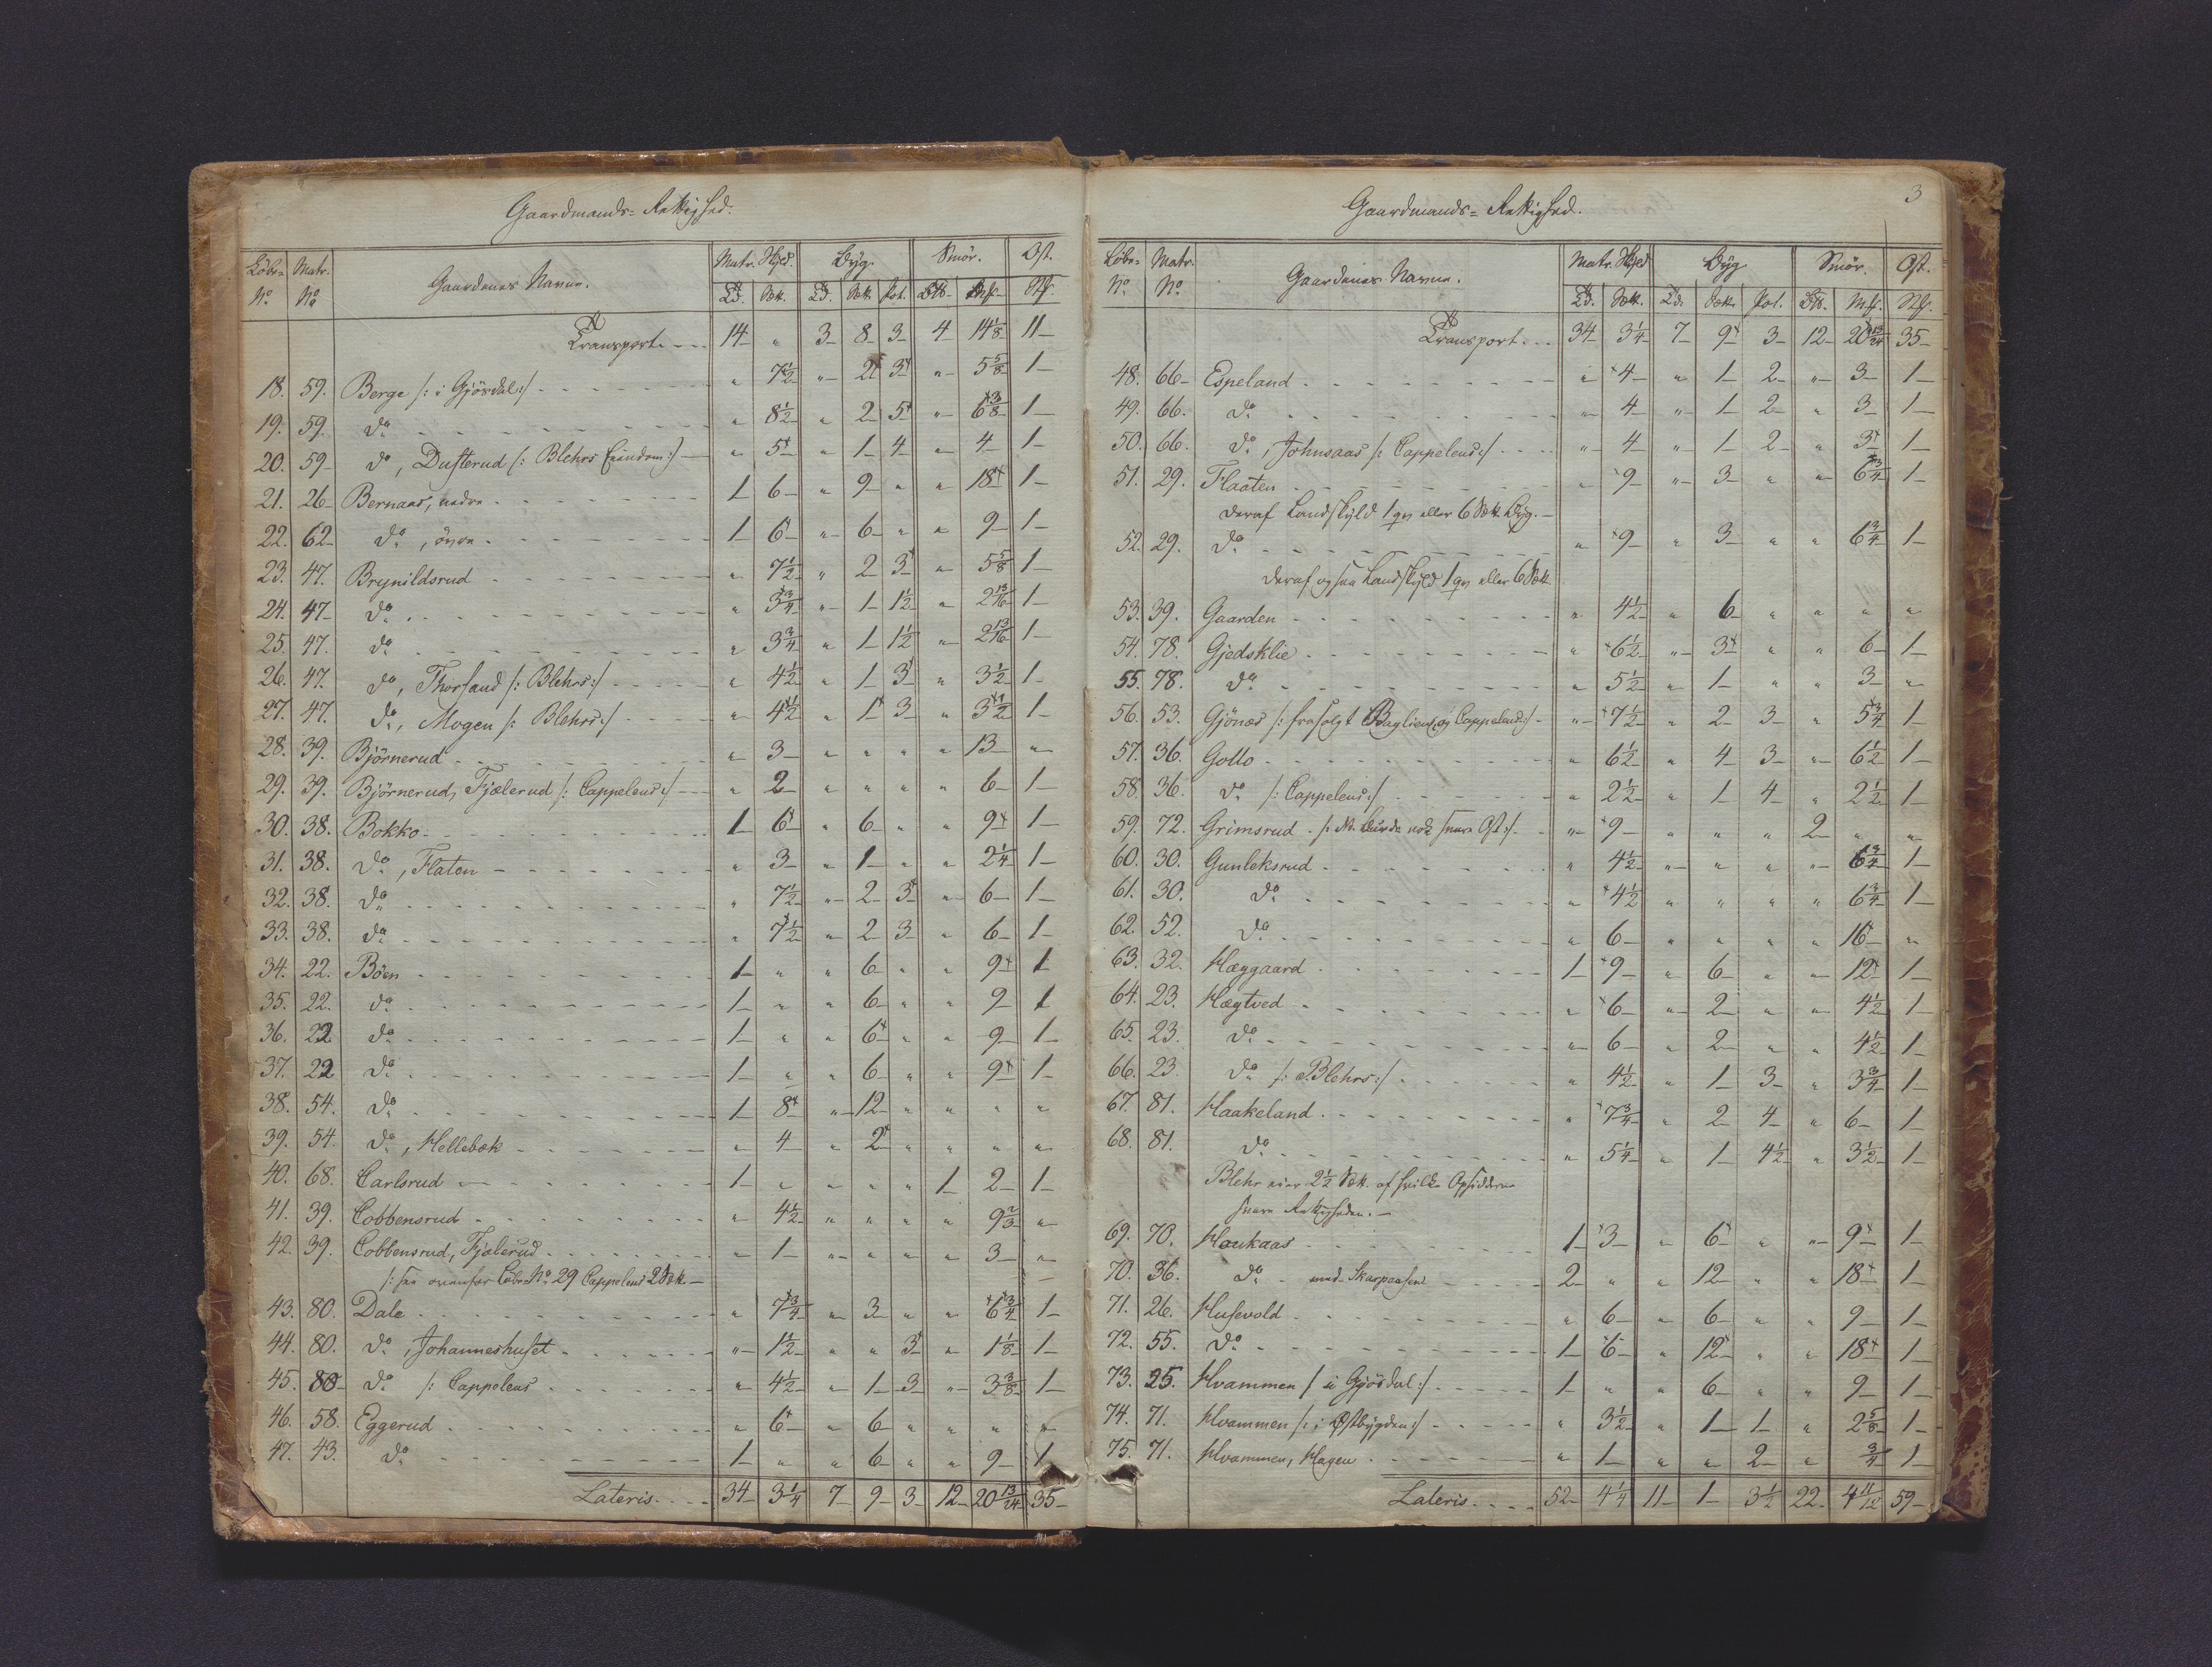 Gaardmands-Rettighed.
Løbe- Matr. Gaardenes Navne. Matr. Skyld. Byg. Smör. Ost.
No No Ld. Sett. Ld. Sett. Pot. Mk.
Transport 14 " 3 8 3 4 14 1/8 11
18. 59. Berge /: i Gjösdal:/ " 7 1/2 " 2 3 " 5 5/8 1
19. 59. do " 8 1/2 " 2 5 " 6 3/8 1
20. 59 do, Dusterud /: Blehrs Eiendom:/ " 5 " 1 4 " 4 1
21. 26 Bernaas, nedre 1 6 " 9 " " 18 1
22. 62 do, övre 1 6 " 6 " " 9 1
23. 47. Brynildsrud " 7 1/2 " 2 3 " 5 5/8 1
24. 47 do " 3 3/4 " 1 1 1/2 " 2 13/16 1
25. 47. do " 3 3/4 " 1 1 1/2 " 2 13/16 1
26. 47. do, Thorsand /: Blehrs:/ " 4 1/2 " 1 3 " 3 1/2 1
27. 47. do, Mogen /: Blehrs:/ " 4 1/2 " 1 3 " 3 1/2 1
28. 39. Björnerud " 3 " " " " 13 "
29. 39. Björnerud, Fjælerud /: Cappelens:/ " 2 " " " " 6 1
30. 38. Bokko 1 6 " 6 " " 9 1
31. 38. do, Flaten " 3 " 1 " " 2 1/4 1
32. 38. do " 7 1/2 " 2 3 " 6 1
33. 38. do " 7 1/2 " 2 3 " 6 1
34. 22. Böen 1 " " 6 " " 9 1
35. 22. do 1 " " 6 " " 9 1
36. 22 do 1 " " 6 " " 9 1
37. 22 do 1 " " 6 " " 9 1
38. 54. do 1 8 " 12 " " " "
39. 54. do, Hellebæk " 4 " 2 " " " "
40. 68. Carlsrud 1 " " " " 1 2 1
41. 39. Cobbensrud " 4 1/2 " " " " 9 2/3 "
42. 39. Cobbensrud, Fjælerud " 1 " " " " 3 "
/: see ovenfor Löbe No 29 Cappelens 2 Sett.
43. 80. Dale " 7 3/4 " 3 " " 6 3/4 1
44. 80. do, Johanneshuset " 1 1/2 " " 3 " 1 1/8 1
45. 80 do /: Cappelens " 4 1/2 " 1 3 " 3 3/8 1
46. 58. Eggerud " 6 " 6 " " " "
47. 43. do 1 " " 6 " " 9 1
Lateris 34 3 1/4 7 9 3 12 20 13/24 35
3
Gaardmands-Rettighed.
Löbe- Matr. Gaardenes Navne. Matr. Skyld Byg Smör. Ost.
No No Ld. Sett. Ld. Sett. Pot. Mk.
Transport 34 3 1/4 7 9 3 12 20 13/24 35
48. 66 Espeland " 4 " 1 2 " 3 1
49. 66. do " 4 " 1 2 " 3 1
50. 66. do, Johnsaas /: Cappelens:/ " 4 " 1 2 " 3 1
51. 29. Flaaten " 9 " 3 " " 6 3/4 1
deraf Landskyld 1 eller 6 Sett. Byg.
52. 29. do " 9 " 3 " " 6 3/4 1
deraf ogsaa Landskyld 1 eller 6 Sett.
53. 39. Gaarden " 4 1/2 " 6 " " " "
54. 78. Gjedsklie " 6 1/2 " 3 " " 6 1
55. 78. do " 5 1/2 " 1 " " 3 "
56. 53. Gjönæs /: frasolgt Bagliens og Cappelens:/ " 7 1/2 " 2 3 " 5 3/4 1
57. 36. Gollo " 6 1/2 " 4 3 " 6 1/2 1
58. 36. do /: Cappelens:/ " 2 1/2 " 1 4 " 2 1/2 1
59. 72. Grimsrud /: NB. burde nok svare Ost:/ " 9 " " " 2 " "
60. 30. Gunleksrud " 4 1/2 " " " " 6 3/4 1
61. 30. do " 4 1/2 " " " " 6 3/4 1
62. 52. do " 6 " " " " 16 "
63. 32. Hæggaard 1 9 " 6 " " 12 1
64. 23. Hægtved " 6 " 2 " " 4 1/2 1
65. 23. do " 6 " 2 " " 4 1/2 1
66. 23 do /: Blehrs:/ " 4 1/2 " 1 3 " 3 3/4 1
67. 81. Haakeland " 7 3/4 " 2 4 " 6 1
68. 81. do " 5 1/4 " 1 4 1/2 " 3 1/2 1
Blehr eier 2 1/2 Sett. af hvilke Opsidderne
svare Rettigheden.
69. 70. Haukaas 1 3 " 6 " " 9 1
70. 36. do med Skarpaasen 2 " " 12 " " 18 1
71. 26. Husevold " 6 " 6 " " 9 1
72. 55. do 1 6 " 12 " " 18 1
73. 25. Hvammen /: i Gjösdal:/ 1 " " 6 " " 9 1
74. 71. Hvammen /: i Østbygden:/ " 3 1/2 " 1 1 " 2 5/8 1
75. 71. Hvammen, Hagen " 1 " " 2 " 3/4 1
Lateris 52 4 1/4 11 1 3 1/2 22 4 11/12 59